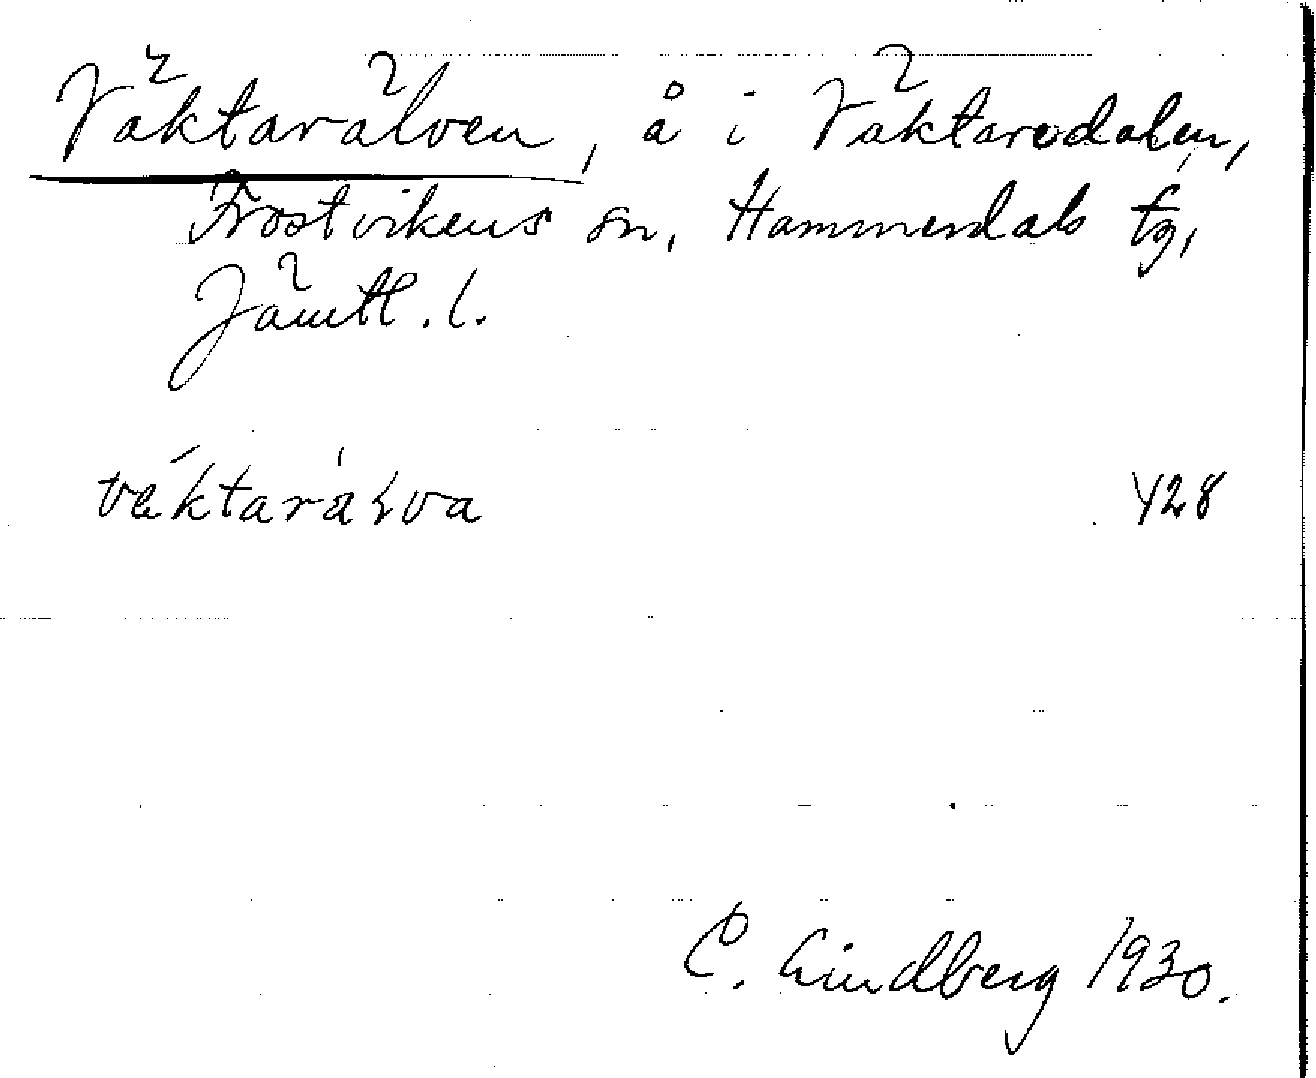 Väktarälven, å i Väktarodalen,
Frostvikens sn, Hammerdals tg,
Jämtl. l.
428
C. Lindberg 1930.